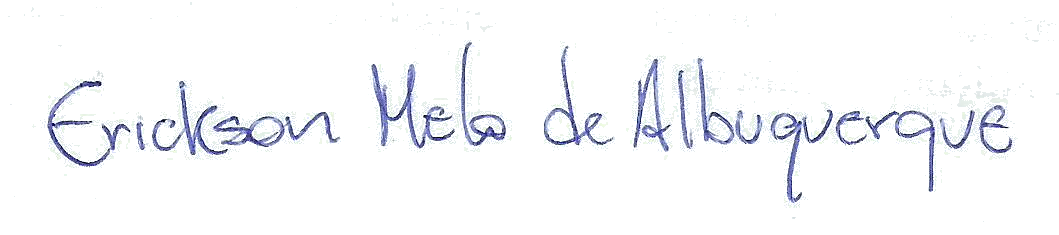 Erickson Melo de Albuquerque